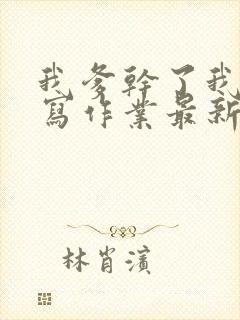 我爹幹了我
寫作業最新
林肖濱